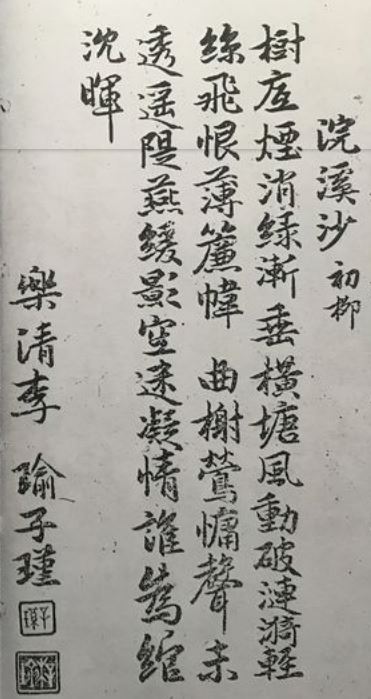 浣溪沙 初柳
樹底煙消綠漸垂橫塘風動破漣漪輕
絲飛恨薄簾幃 曲榭鶯慵聲未
透遥隄燕緩影空迷凝情誰為綰
沈暉
樂清李 瑜子瑾